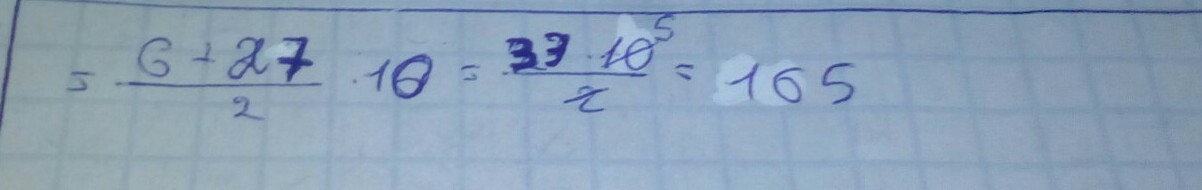 = 6 + 27 / 2 · 10 = 33 · 10 5 / 2 = 165